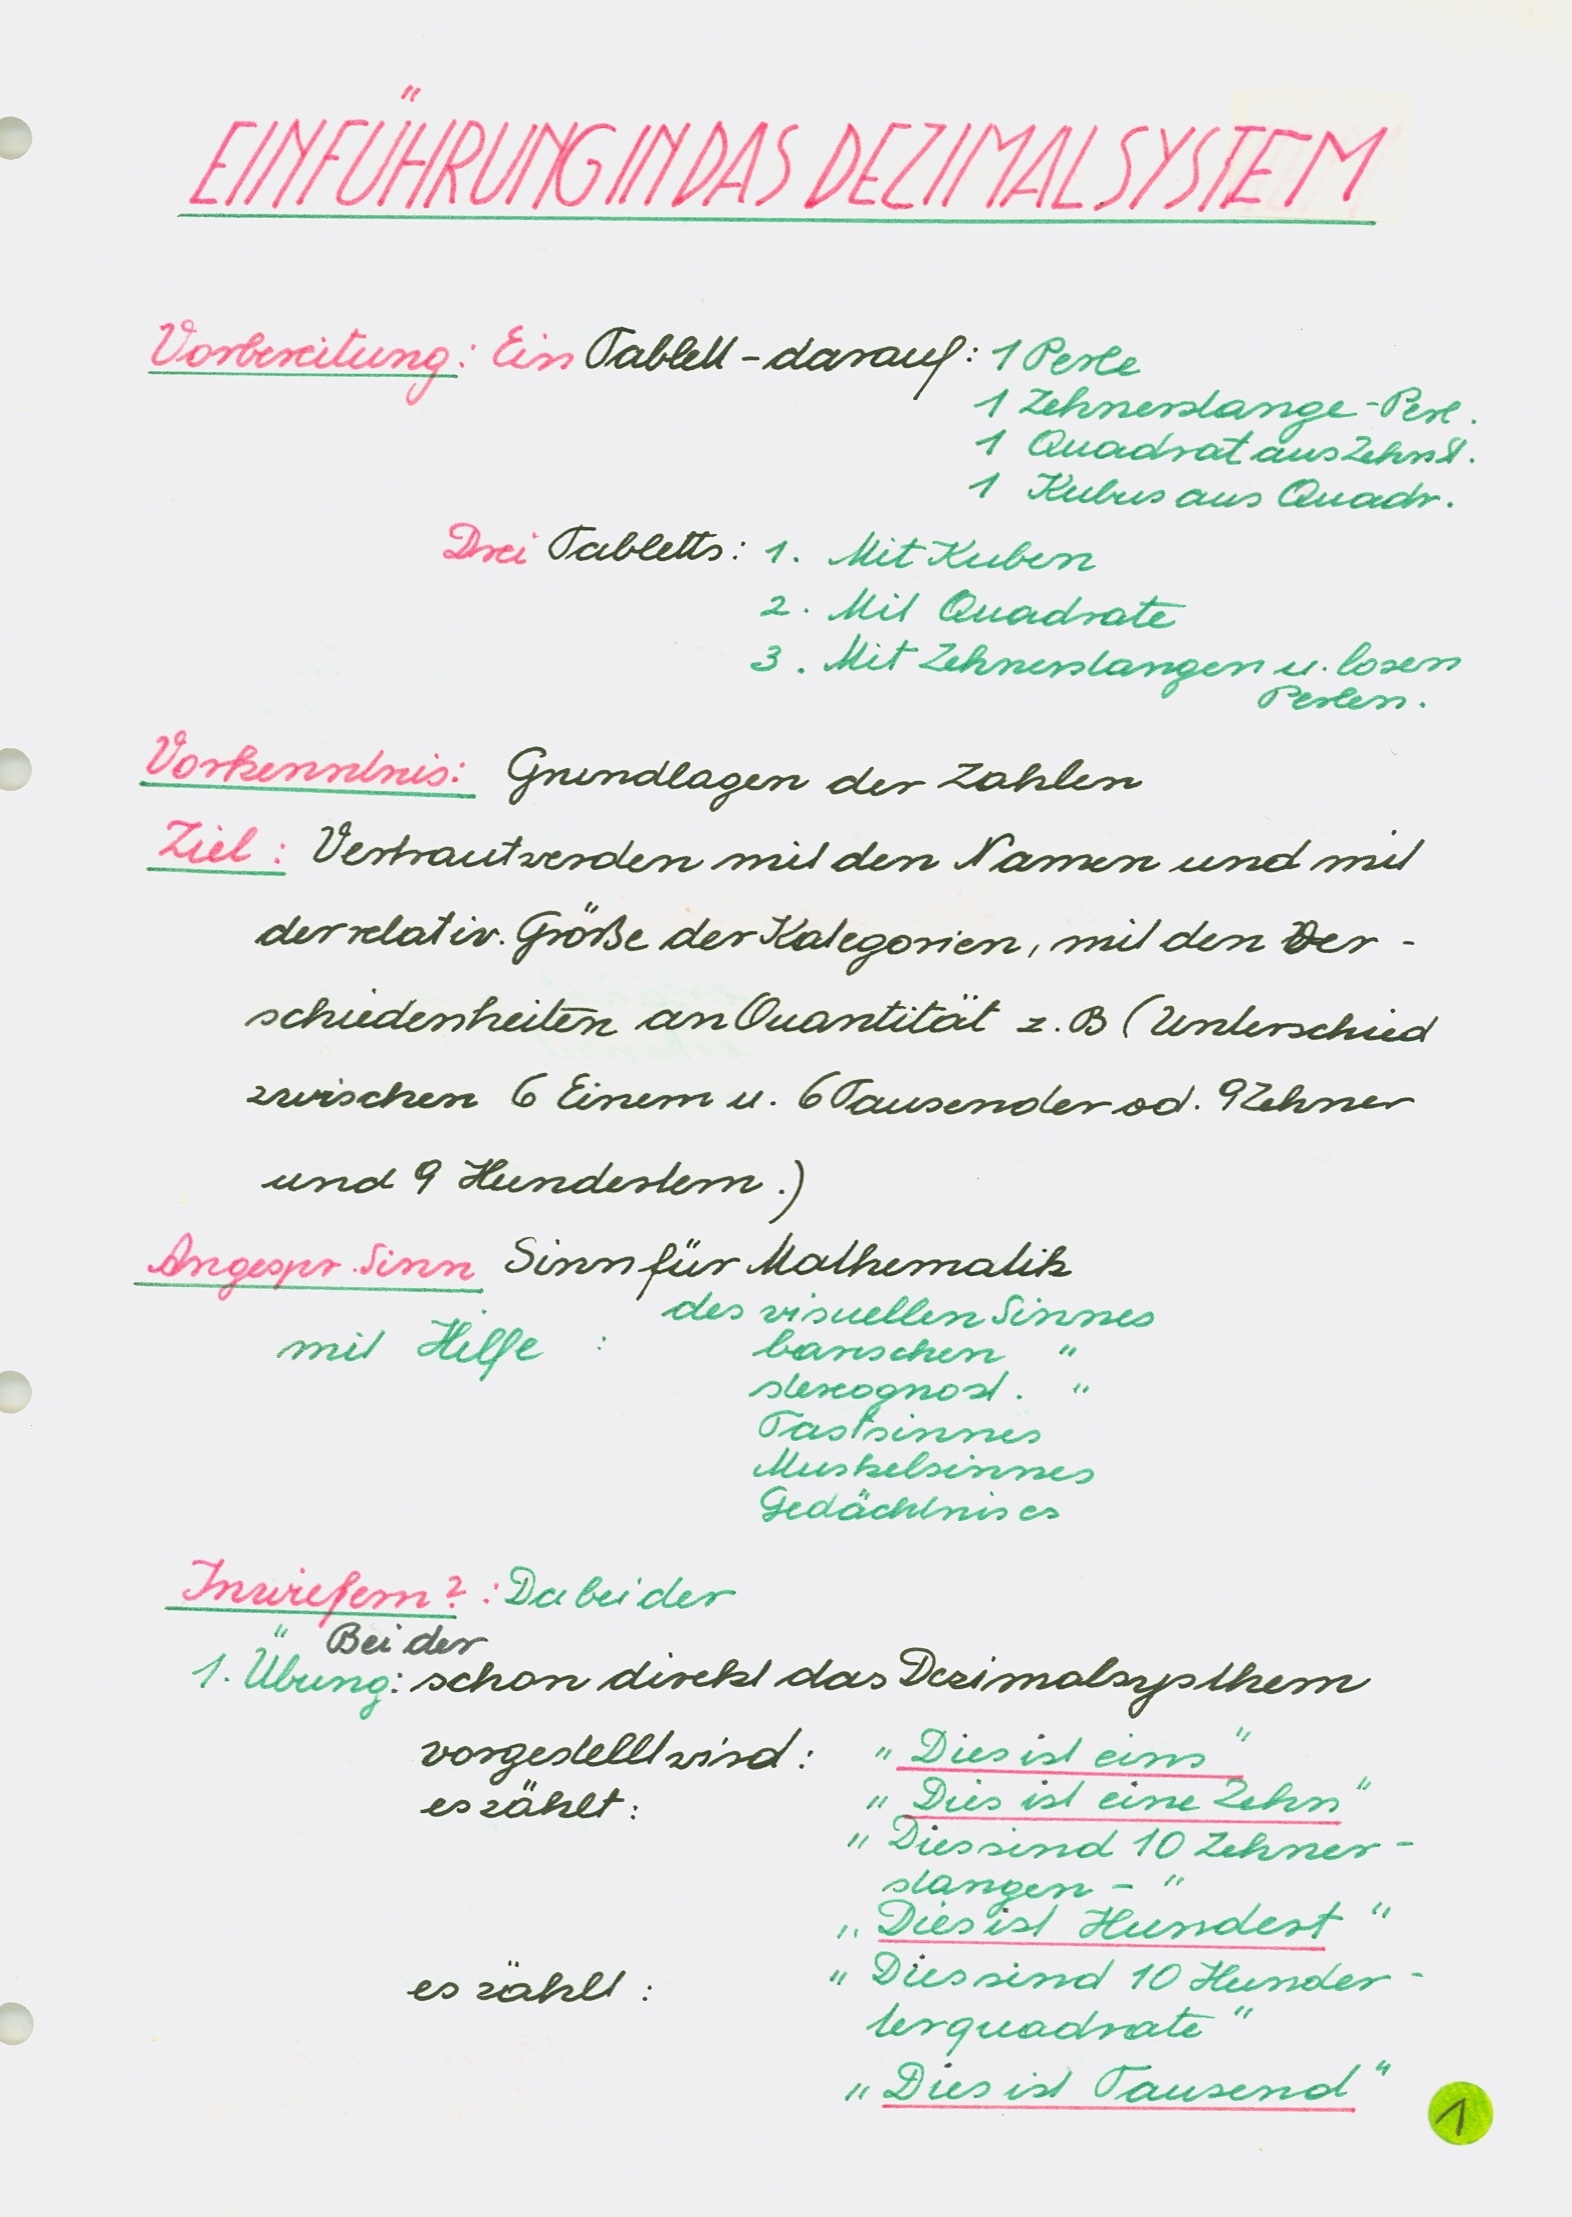 EINFÜHRUNG IN DAS DEZIMALSYSTEM
Vorbereitung: Ein Tablett - darauf: 1 Perle
1 Zehnerstange - Perl.
1 Quadrat aus Zehnst.
1 Kubus aus Quadr.
Drei Tabletts: 1. Mit Kuben
2. Mit Quadrate
3. Mit Zehnerstangen u. losen
Perlen.
Vorkenntnis: Grundlagen der Zahlen
Ziel: Vertrautwerden mit den Namen und mit
der relativ. Größe der Kategorien, mit den Ver-
schiedenheiten an Quantität z.B (Unterschied
zwischen 6 Einern u. 6 Tausender od. 9 Zehner
und 9 Hundertern.)
Angespr. Sinn Sinn für Mathematik
mit Hilfe : des visuellen Sinnes
barischen "
stereognost. "
Tastsinnes
Muskelsinnes
Gedächtnises
Inwiefern? : Da bei der
Bei der
1. Übung: schon direkt das Dezimalsysthem
vorgestellt wird: "Dies ist eins"
es zählt: "Dies ist eine Zehn"
"Dies sind 10 Zehner-
stangen - "
"Dies ist Hundert"
es zählt: "Dies sind 10 Hunder-
terquadrate"
"Dies ist Tausend"
1